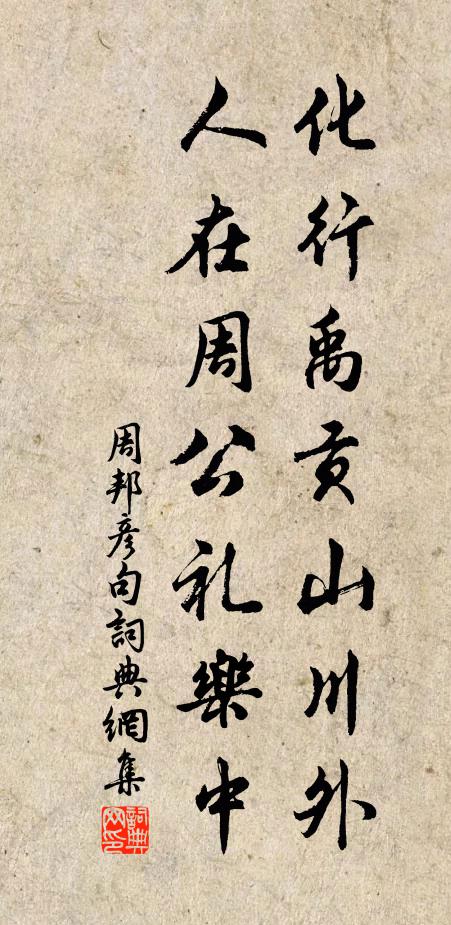 化行禹贡山川外
人在周公礼樂中
周邦彥句詞典網集
詞典网印